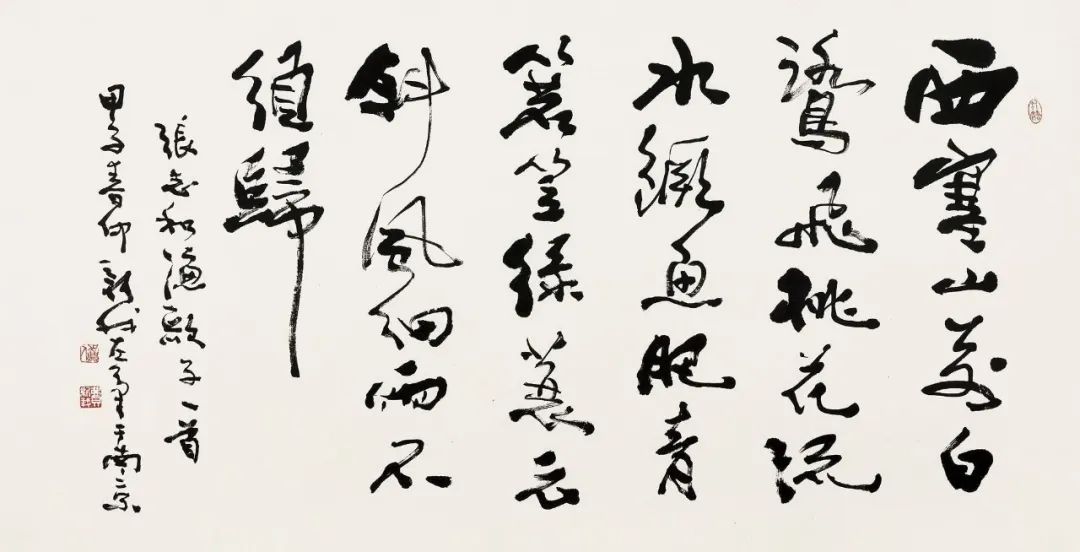 西塞山前白
鷺飛桃花流
水鱖魚肥青
箬笠綠蓑衣
斜風細雨不
須歸
張志和漁歌子一首
甲子春仲新我左筆于南京